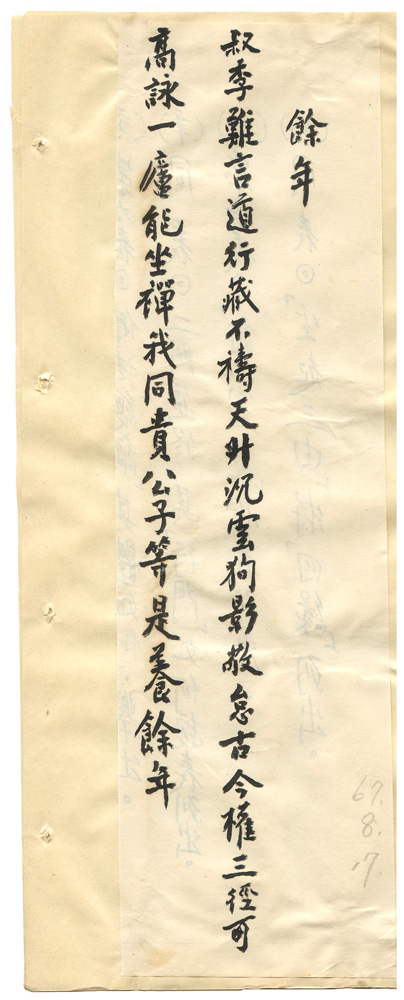 餘年
叔季難言道行藏不禱天升沉雲狗影敬怠古今權三徑可
高詠一廬能坐禪我同貴公子等是養餘年
67.
8.
17.